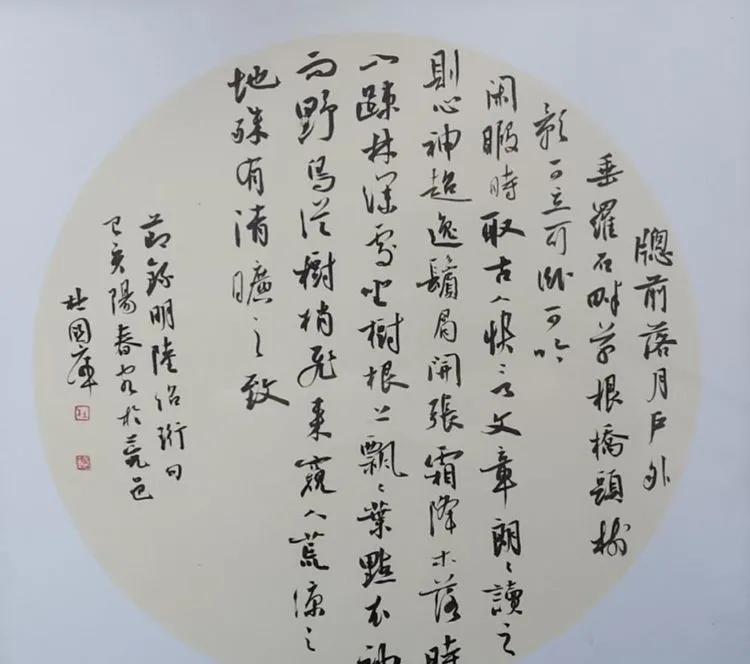 牕前落月戶外
垂羅石畔草根橋頭樹
影可立可卧可吟
閑暇時取古人快意文章朗〻讀之
則心神超逸鬚眉開張霜降木落時
入疎林深處坐樹根上飄〻葉點衣袖
而野鳥從樹梢飛來窺人荒涼之
地殊有清曠之致
節錄明陸紹珩句
己亥陽春書於莞邑
杜國庫